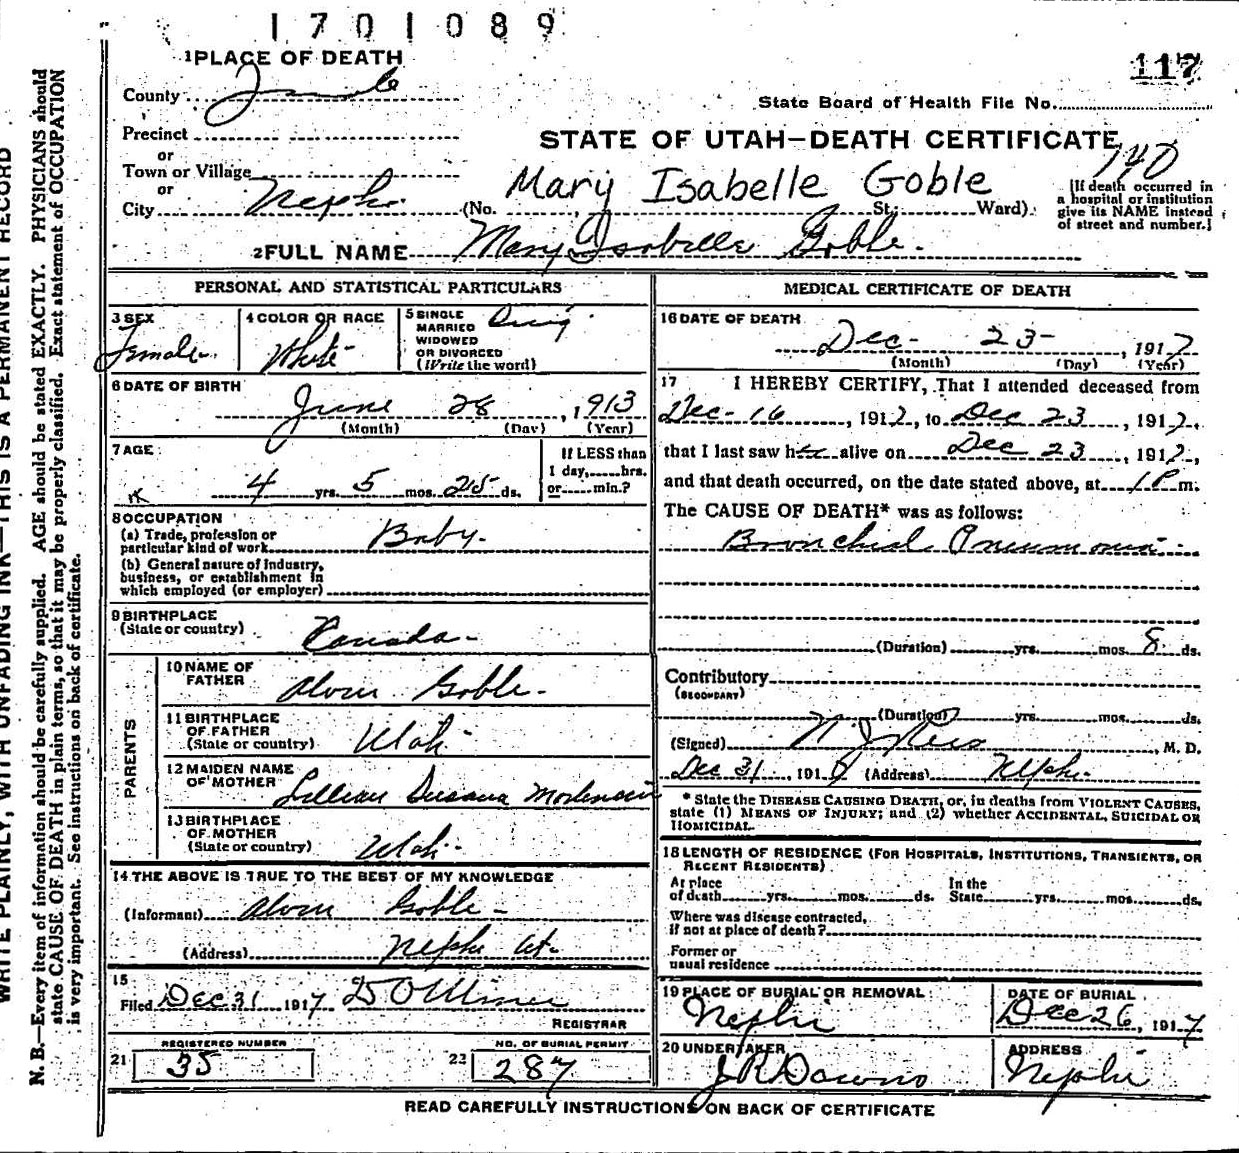 1701089
117
1 PLACE OF DEATH
County Juab
State Board of Health File No.
Precinct
STATE OF UTAH—DEATH CERTIFICATE
or
140
Town or Village
Mary Isabelle Goble
or
City Nephi (No. St.; Ward)
[If death occurred in
a hospital or institution
give its NAME instead
of street and number.]
2 FULL NAME Mary Isabelle Goble.
PERSONAL AND STATISTICAL PARTICULARS
3 SEX
Female
4 COLOR OR RACE
White
5 SINGLE
MARRIED
WIDOWED
OR DIVORCED
(Write the word)
6 DATE OF BIRTH
June 28, 1913
(Month) (Day) (Year)
7 AGE
4 yrs. 5 mos. 25 ds.
If LESS than
1 day, hrs.
or min.?
8 OCCUPATION
(a) Trade, profession or
particular kind of work Baby.
(b) General nature of Industry,
business, or establishment in
which employed (or employer)
9 BIRTHPLACE
(State or country) Canada
PARENTS
10 NAME OF
FATHER Alvin Goble
11 BIRTHPLACE
OF FATHER
(State or country) Utah
12 MAIDEN NAME
OF MOTHER Lillian Susana
13 BIRTHPLACE
OF MOTHER
(State or country) Utah
14 THE ABOVE IS TRUE TO THE BEST OF MY KNOWLEDGE
(Informant) Alvin Goble
(Address) Nephi Ut.
15
Filed Dec 31 1917
REGISTRAR
REGISTERED NUMBER
21 35
NO. OF BURIAL PERMIT
22 287
MEDICAL CERTIFICATE OF DEATH
16 DATE OF DEATH
Dec 23, 1917
(Month) (Day) (Year)
17 I HEREBY CERTIFY, That I attended deceased from
Dec 16, 1917, to Dec 23, 1917,
that I last saw her alive on Dec 23, 1917,
and that death occurred, on the date stated above, at 1 P m.
The CAUSE OF DEATH* was as follows:
Bronchial Pneumonia
(Duration) yrs. mos. 8 ds.
Contributory
(SECONDARY)
(Duration) yrs. mos. ds.
(Signed) M. D.
Dec 31, 191 (Address) Nephi
* State the DISEASE CAUSING DEATH, or, in deaths from VIOLENT CAUSES,
state (1) MEANS OF INJURY; and (2) whether ACCIDENTAL, SUICIDAL OR
HOMICIDAL.
18 LENGTH OF RESIDENCE (FOR HOSPITALS, INSTITUTIONS, TRANSIENTS, OR
RECENT RESIDENTS)
At place
of death yrs. mos. ds.
In the
State yrs. mos. ds.
Where was disease contracted,
if not at place of death?
Former or
usual residence
19 PLACE OF BURIAL OR REMOVAL
Nephi
DATE OF BURIAL
Dec 26, 1917
20 UNDERTAKER
ADDRESS
Nephi
READ CAREFULLY INSTRUCTIONS ON BACK OF CERTIFICATE
WRITE PLAINLY, WITH UNFADING INK—THIS IS A PERMANENT RECORD
N. B.—Every item of information should be carefully supplied. AGE should be stated EXACTLY. PHYSICIANS should
state CAUSE OF DEATH in plain terms, so that it may be properly classified. Exact statement of OCCUPATION
is very important. See instructions on back of certificate.